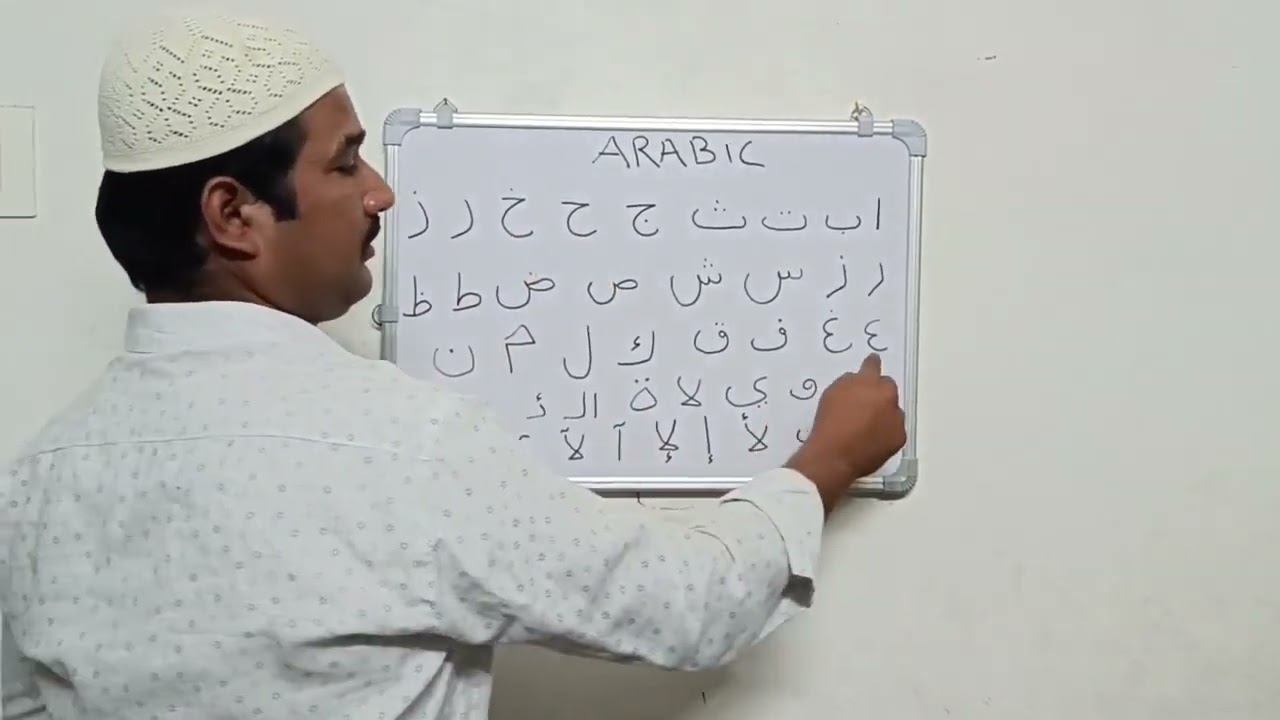 ARABIC
ا ب ت ث ج ح خ ر ز
ر ز س ش ص ض ط ظ
ع غ ف ق ك ل م ن
و ي لا ة الـ ئـ
لأ إ لإ آ لآ